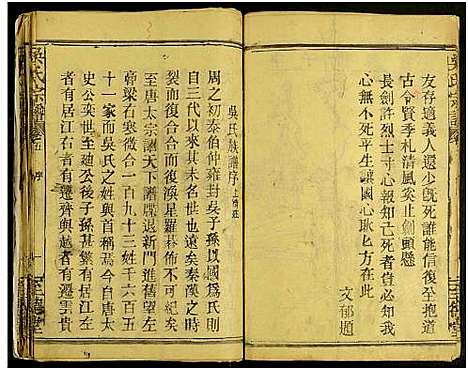 吳氏宗譜
友存適義人還少旣死誰能信復生抱道
古今賢季札清風奚止劍頭懸
長劍許烈士寸心報知己死者豈必知我
心無不死平生讓國心耿匕可以
文郁題
至德堂
吳氏族譜序
周之初泰伯仲雍封吳子孫以國爲氏則
自三代以來其未名世也至秦漢之時
裂而復合合而復渙星羅碁佈不可紀矣
至唐太宗詔天下譜牒退新門進舊望左
幹梁右寒微合一百九十三姓千六百五
十一家而吳氏之姓與首頻焉今自唐太
史公奕世至廸公子孫甚繁有居江左
者有居江右者有遷齊與越者有遷雲貴
吳氏宗譜
序
一
至德堂